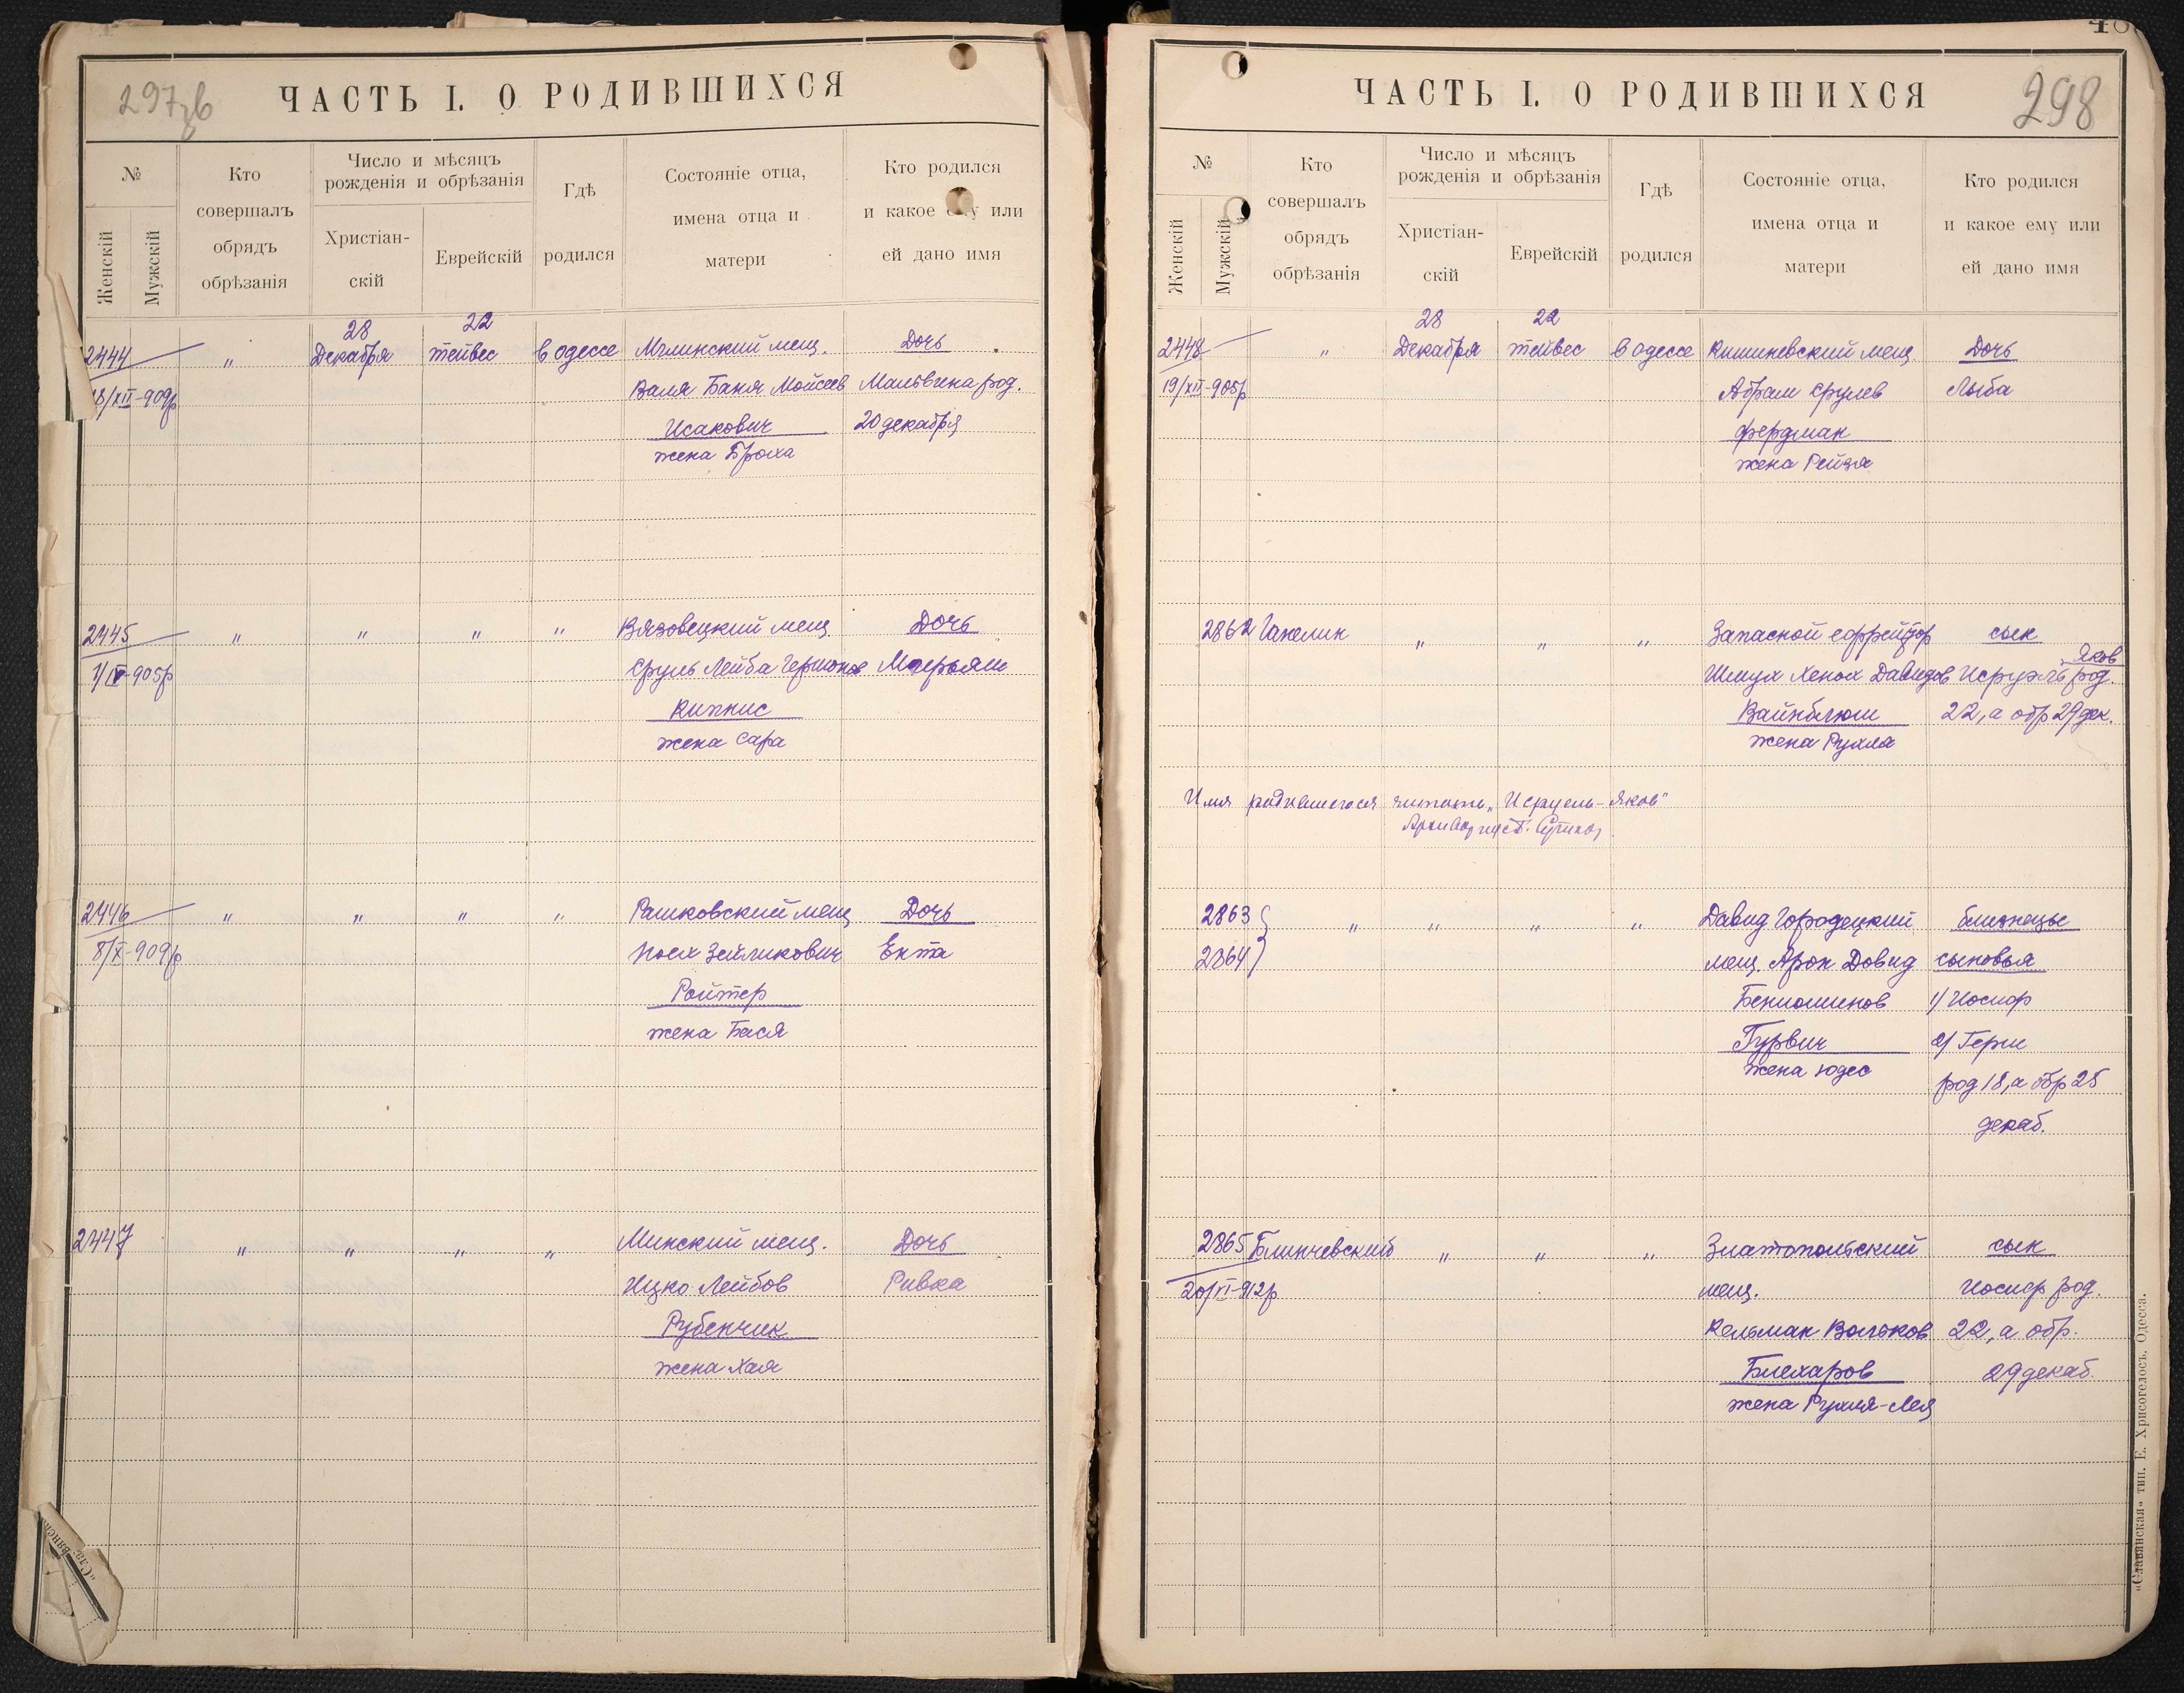 297 зв
ЧАСТЬ I. О РОДИВШИХСЯ
№
Женскій
Мужскій
Кто
совершалъ
обрядъ
обрѣзанія
Число и мѣсяцъ
рожденія и обрѣзанія
Христіан-
скій
Еврейскій
Гдѣ
родился
Состояніе отца,
имена отца и
матери
Кто родился
и какое ему или
ей дано имя
28 22
2444 " Декабря тейвес в Одессе Мглинский мещ. Дочь
18/XII-909р Валя Баня Мойсеев Мальвина род.
Исакович 20 декабря
жена Броха
2445 " " " " Вязовецкий мещ. Дочь
905р Сруль Лейба Гершонов Мирьям
Кипнис
жена Сара
2446 " " " " Рашковский мещ Дочь
8/X-909р Иосл Зейликович Ента
Ройтер
жена Бася
2447 " " " " Минский мещ. Дочь
Ицко Лейбов Ривка
Рубенчик
жена Хая
"Славянск
298
ЧАСТЬ I. О РОДИВШИХСЯ
№
Женскій
Мужскій
Кто
совершалъ
обрядъ
обрѣзанія
Число и мѣсяцъ
рожденія и обрѣзанія
Христіан-
скій
Еврейскій
Гдѣ
родился
Состояніе отца,
имена отца и
матери
Кто родился
и какое ему или
ей дано имя
28 22
2448 " Декабря тейвес в Одессе Кишиневский мещ Дочь
19/XII-905р Абрам Срулев Лыба
Фердман
жена Рейзя
2862 Ганелин " " " Запасной ефрейтор сын
Яков
Шмул Хенох Давидов Исруэль род.
Вайнблюм 22, а обр 29 дек.
жена Рухля
Имя родившегося читать "Исруель-Яков"
2863 " " " " Давид Городецкий близнецы
2864 мещ. Арон Довид сыновья
Бениоминов 1/ Иосиф
Гурвич 2/ Герш
жена Юдес род 18, а обр 25
декаб.
2865 Блинчевский " " " Златопольский сын
20/XI-912р мещ. Иосиф род.
Кельман Вольков 22, а обр.
Блехаров 29 декаб.
жена Рухля-Лея
"Славянская" тип. Е. Хрисогелосъ. Одесса.